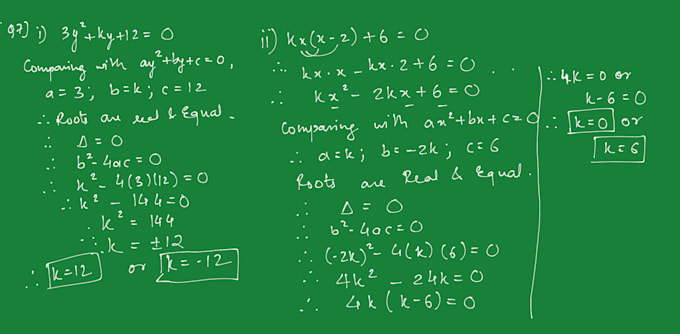 Q7) i) 3y² + ky + 12 = 0
Comparing with ay² + by + c = 0,
a = 3; b = k; c = 12
∴ Roots are real & Equal.
∴ Δ = 0
∴ b² - 4ac = 0
∴ k² - 4(3)(12) = 0
∴ k² - 144 = 0
∴ k² = 144
∴ k = ±12
∴ k = 12 or k = -12
ii) kx(x - 2) + 6 = 0
∴ kx·x - kx·2 + 6 = 0
∴ kx² - 2kx + 6 = 0
Comparing with ax² + bx + c = 0
∴ a = k; b = -2k; c = 6
Roots are Real & Equal.
∴ Δ = 0
∴ b² - 4ac = 0
∴ (-2k)² - 4(k)(6) = 0
∴ 4k² - 24k = 0
∴ 4k(k - 6) = 0
∴ 4k = 0 or
k - 6 = 0
∴ k = 0 or
k = 6